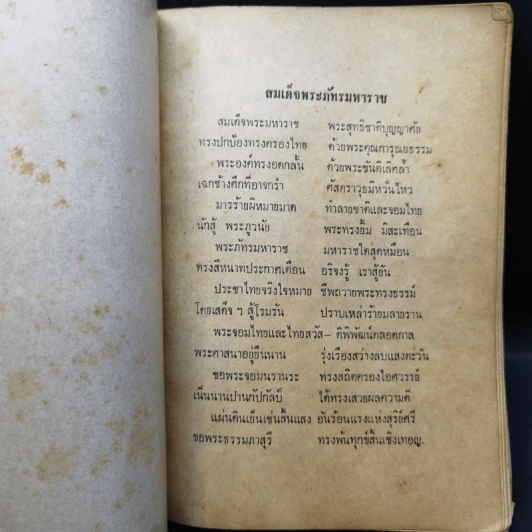 สมเด็จพระภัทรมหาราช
สมเด็จพระมหาราช พระสุทธิชาติบุญญาศัย
ทรงปกป้องทรงครองไทย ด้วยพระคุณการุณยธรรม
พระองค์ทรงอดกลั้น ด้วยพระขันติเลิศล้ำ
เฉกช้างศึกที่อาจกรำ คัสตราวุธมิหวั่นไหว
มารร้ายผิหมายมาด ทำลายชาติและจอมไทย
นักสู้ พระภูวนัย พระทรงยิ้ม มิสะเทือน
พระภัทรมหาราช มหาราชใดสุดเหมือน
ตรงสีหนาทประกาศเตือน อริจงรู้ เราสู้ยัน
ประชาไทยจริงใจหมาย ชีพถวายพระทรงธรรม์
โดยเสด็จ ฯ สู้โรมรัน ปราบเหล่าร้ายมลายราน
พระจอมไทยและไทยสวัส– ดิพิพัฒน์ตลอดกาล
พระศาสนาอยู่ยืนนาน รุ่งเรืองสว่างลบแสงตะวัน
ขอพระจอมนรานระ ทรงสถิตครองไอศวรรย์
เนิ่นนานปานกัปกัลป์ ได้ทรงเสวยผลความดี
แผ่นดินเย็นเช่นสิ้นแสง อันร้อนแรงแห่งสุริย์ศรี
ขอพระธรรมภาสุรี ทรงพ้นทุกข์สิ้นเชิงเทอญ.